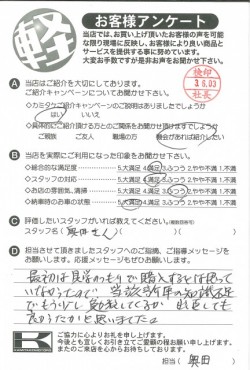 軽
お客様アンケート
当店では、お買い上げ頂いたお客様の声を可能
な限り現場に反映し、お客様により良い商品と
サービスを提供する事に努めています。
大変お手数ですが是非お声をお聞かせ下さい。
検印
3.6.03
社長
A 当店はご紹介を大切にしております。
ご紹介キャンペーンについてお聞かせ下さい。
◇カミタケご紹介キャンペーンのご説明はありましたでしょうか
はい いいえ
◇具体的にご紹介頂ける方とのご関係をお聞かせ頂けますでしょうか
ご親族 ご友人 職場の方 機会があれば紹介したい
B 当店を実際にご利用になった印象をお聞かせ下さい。
◇総合的な満足度 5.大満足 4.満足 3.ふつう 2.やや不満 1.不満
◇スタッフの対応 5.大満足 4.満足 3.ふつう 2.やや不満 1.不満
◇お店の雰囲気、清掃 5.大満足 4.満足 3.ふつう 2.やや不満 1.不満
◇納車時のお車の状態 5.大満足 4.満足 3.ふつう 2.やや不満 1.不満
C 評価したいスタッフがいれば教えてください。(複数回答可)
スタッフ名( 奥田さん )
D 担当させて頂きましたスタッフへのご指摘、ご指導メッセージを
お願いします。応援メッセージもぜひお願いします!
最初は見学のつもりで購入するとは思って
いなかったので
でもう少し 対応しても
良かったかと思いました
K
ご協力に心よりお礼を申し上げます。
今後とも宜しくお引き立てご愛顧の程お願い申し上げます。
またのご来店を心からお待ちしております。
担当( 奥田 )